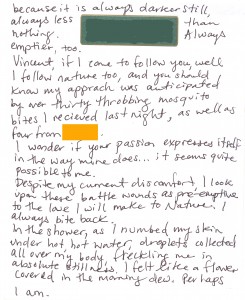 because it is always darker still,
always less than
nothing. Always
emptier, too.
Vincent, if I came to follow you, well
I follow nature too, and you should
know my approach was anticipated
by over thirty throbbing mosquito
bites I recieved last night, as well as
four from
I wonder if your passion expresses itself
in the way mine does... it seems quite
possible to me.
Despite my current discomfort I look
upon these battle wounds as pre-emptive
to the love I will make to Nature. I
always bite back.
In the shower, as I numbed my skin
under hot hot water, droplets collected
all over my body, freckling me in
absolute stillness. I felt like a flower
covered in the morning dew. Perhaps
I am.